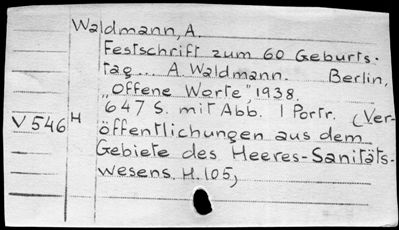 Waldmann, A.
Festschrift zum 60 Geburts-
tag... A. Waldmann. Berlin,
"Offene Worte", 1938.
647 S. mit Abb. 1 Portr. (Ver-
V 546 H
öffentlichungen aus dem
Gebiete des Heeres-Sanitäts-
wesens. H. 105)